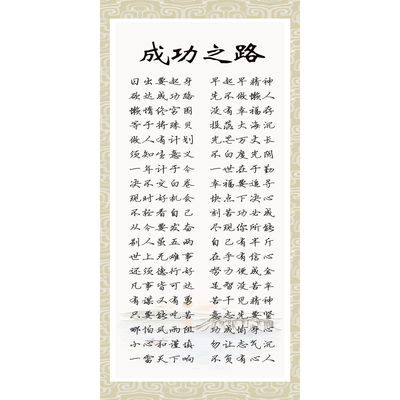 成功之路
日出要起身 早起早精神
欲达成功路 先不做懒人
懒惰终穷困 没有幸福存
等于将珠贝 投落大海沉
做人有计划 光芒万丈长
须知生意义 不白度光阴
一年计于今 一世在于勤
决不交白卷 幸福要追寻
现时好机会 快点下决心
不轻看自己 刻苦功必成
从今要奋 尽现你所能
别人虽五两 自己有半斤
世上无难事 在乎有信心
还须德行好 努力便成金
凡事皆可达 是智没苦辛
有谋又有勇 苦干见精神
只要能吃苦 意志先要坚
哪怕风雨阻 成功愉身心
小心和谨慎 勿让志气沉
一雷天下响 不负有心人